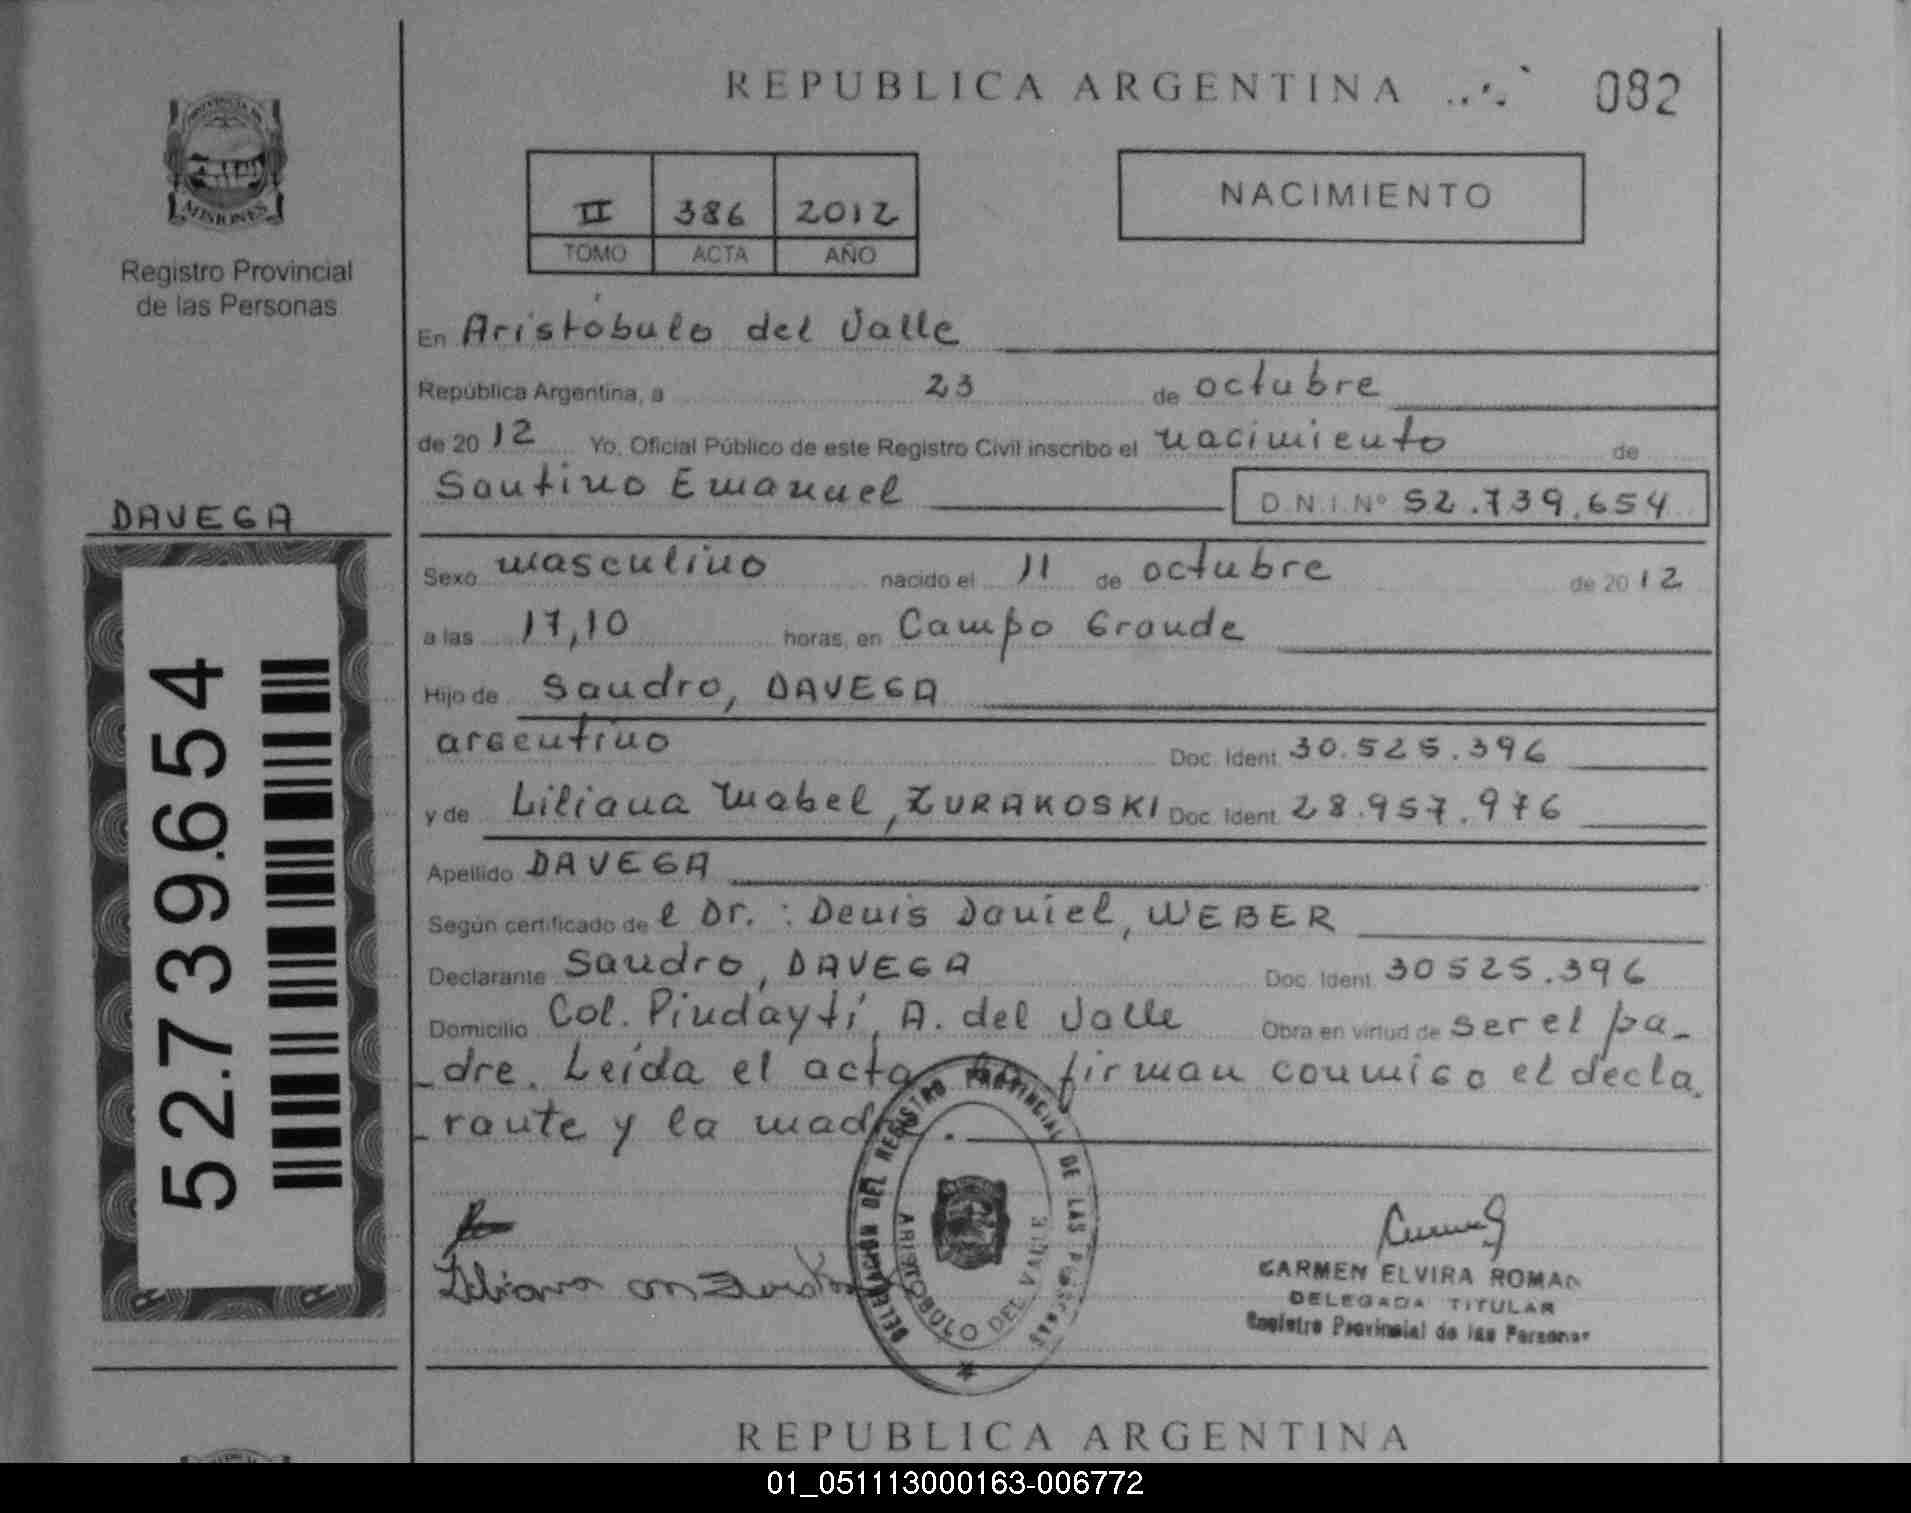 REPUBLICA ARGENTINA
082
PROVINCIA DE
MISIONES
Registro Provincial
de las Personas
II 386 2012
TOMO ACTA AÑO
NACIMIENTO
En Aristóbulo del Valle
República Argentina, a 23 de octubre
de 2012 Yo, Oficial Público de este Registro Civil inscribo el nacimiento de
Santino Emanuel D.N.I. Nº 52.739.654
DAVEGA
52.739.654
Sexo masculino nacido el 11 de octubre de 2012
a las 17,10 horas, en Campo Grande
Hijo de Sandro, DAVEGA
argentino Doc. Ident. 30.525.396
y de Liliana Mabel, ZURAKOSKI Doc. Ident. 28.957.976
Apellido DAVEGA
Según certificado de l Dr.: Denis Daniel, WEBER
Declarante Sandro, DAVEGA Doc. Ident. 30525.396
Domicilio Col. Pindaytí, A. del Valle Obra en virtud de ser el pa-
-dre. Leída el acta firman conmigo el decla
-rante y la madre.
DELEGACION DEL REGISTRO PROVINCIAL DE LAS PERSONAS
ARISTOBULO DEL VALLE
Liliana
CARMEN ELVIRA ROMAN
DELEGADA TITULAR
Registro Provincial de las Personas
REPUBLICA ARGENTINA
01_051113000163-006772